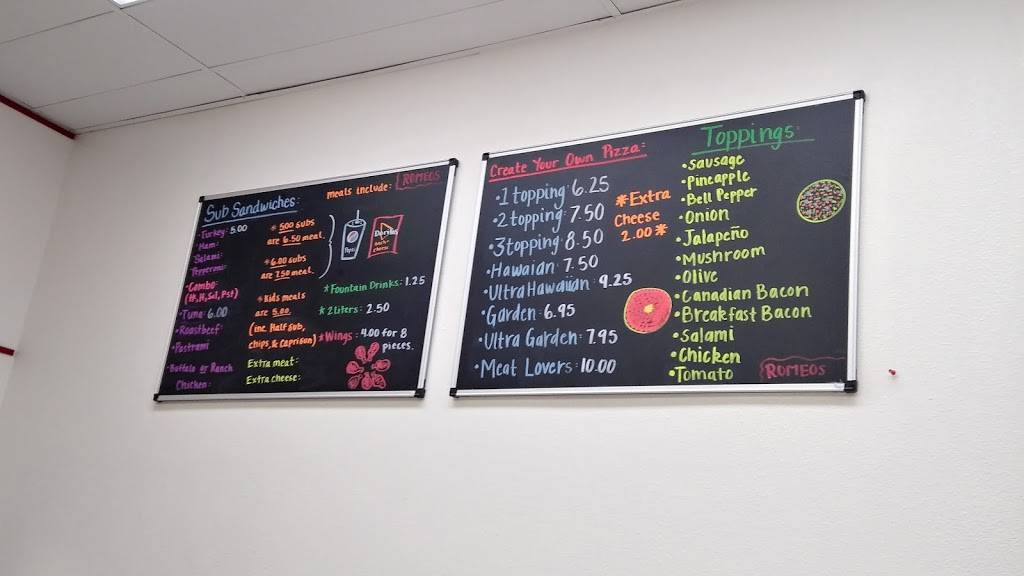 Sub Sandwiches:
• Turkey: 5.00
• Ham:
Salami:
Pepperoni:
• Combo:
• Tuna: 6.00
• Roastbeef:
• Pastrami
• Buffalo or Ranch
Chicken:
meals include: ROMEOS
* 500 subs
are 6.50 meal.
* 6.00 subs
are 7.50 meal.
* Kids meals
are 5.00.
(inc. Half Sub,
chips, & Caprisun)
Extra meat:
Extra cheese:
Pepsi
Doritos
nacho
cheese
* Fountain Drinks: 1.25
* 2 liters: 2.50
* Wings: 4.00 for 8
pieces.
Create Your Own Pizza:
• 1 topping 6.25
• 2 topping 7.50
• 3 topping 8.50
• Hawaiian 7.50
• Ultra Hawaiian: 9.25
• Garden: 6.95
• Ultra Garden: 7.95
• Meat Lovers: 10.00
*Extra
Cheese
2.00*
Toppings:
• Sausage
• Pineapple
• Bell Pepper
• Onion
• Jalapeño
• Mushroom
• Olive
• Canadian Bacon
• Breakfast Bacon
• Salami
• Chicken
• Tomato
ROMEOS